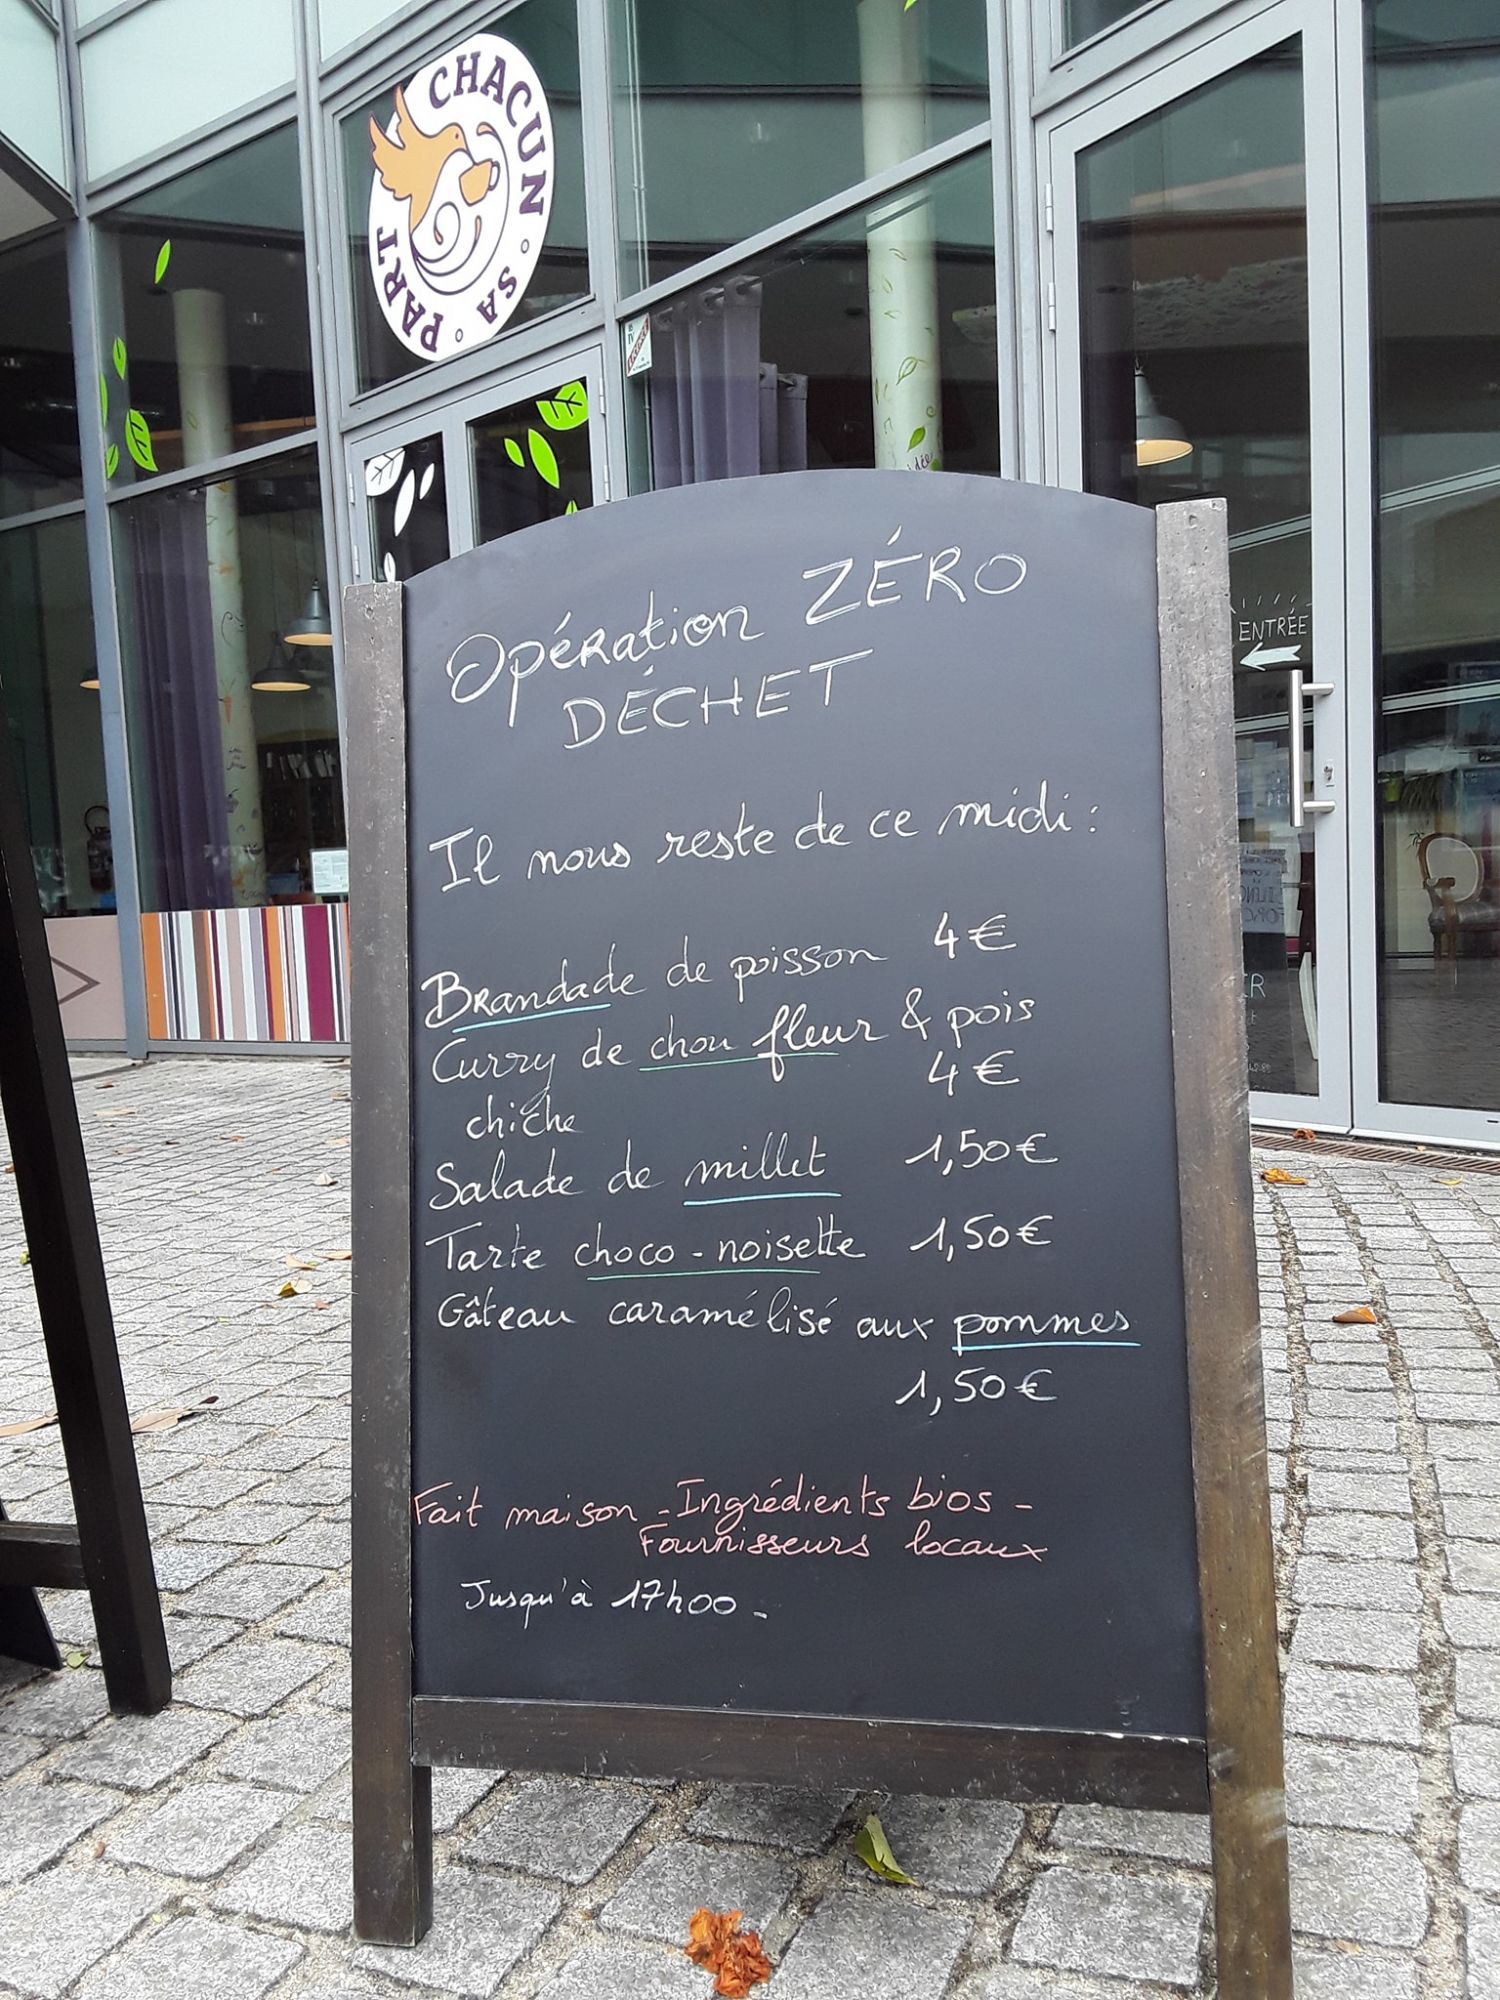 CHACUN ° SA ° PART
ENTRÉE
Opération ZÉRO
DÉCHET
Il nous reste de ce midi :
Brandade de poisson 4€
Curry de chou fleur & pois
chiche 4€
Salade de millet 1,50€
Tarte choco-noisette 1,50€
Gâteau caramélisé aux pommes
1,50€
Fait maison - Ingrédients bios -
Fournisseurs locaux
Jusqu'à 17h00 -